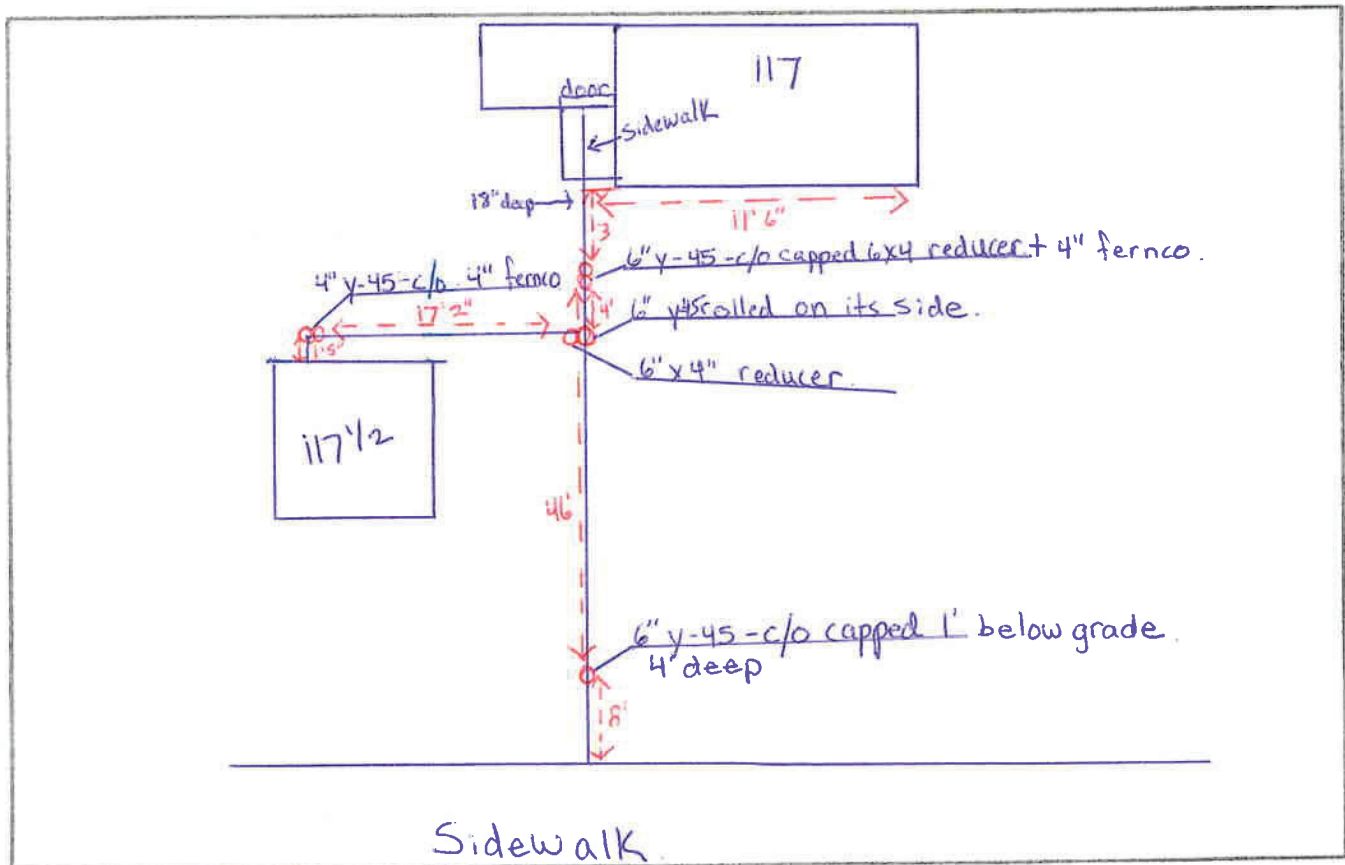 117
door
sidewalk
18" deep
11' 6"
3
6" y-45-c/o capped 6x4 reducer + 4" fernco.
4" y-45-c/o 4" fernco
4'
17' 2"
6" y45 rolled on its side.
1'5"
6" x 4" reducer.
117 1/2
46'
6" y-45-c/o capped 1' below grade.
4' deep
8'
Sidewalk